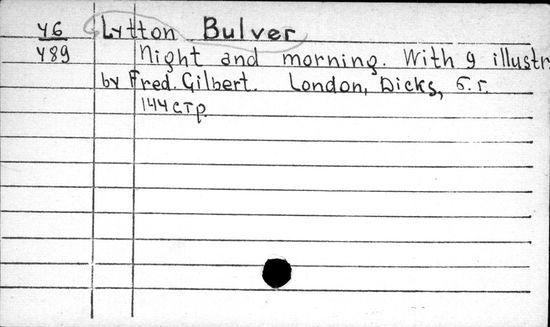 У6 Lytton Bulver
У89 Night and morning. With 9 illustr
by Fred. Gilbert. London, Dicks, б.г.
144 стр.